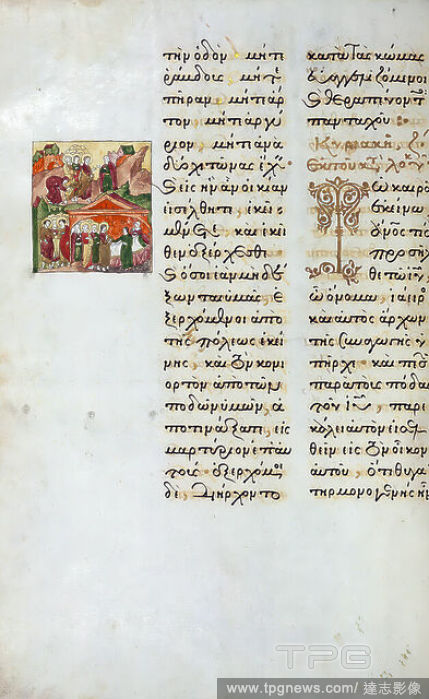 τὴν ὁδόν· μήτε
ῥάβδους μήτε
πήραν· μήτε ἄρ
τον· μήτε ἀργύ
ριον· μήτε ἀνὰ
δύο χιτῶνας ἔχ
καὶ εἰς ἣν ἂν οἰκίαν
εἰσέλθητε, ἐκεῖ
μένετε καὶ ἐκεῖ
θεν ἐξέρχεσθε
καὶ ὅσοι ἐὰν μὴ δέ
ξωνται ὑμᾶς, ἐ
ξερχόμενοι ἀπὸ
τῆς πόλεως ἐκεί
νης, καὶ τὸν κονι
ορτὸν ἀπὸ τῶν
ποδῶν ὑμῶν, ἀ
ποτινάξατε, εἰς
μαρτύριον ἐπ' αὐ
τούς· ἐξερχόμ
δὲ, διήρχοντο
κατὰ τὰς κώμας
εὐαγγελιζόμενοι
καὶ θεραπεύοντ
πανταχοῦ·
Κυριακῇ
Ἐκ τοῦ κατ
Τῷ καιρῷ
ἐκείνῳ
ἄνος τις
προσῆλ
θε τῷ ἰῦ
ᾧ ὄνομα, ἰάειρ
καὶ αὐτὸς ἄρχων
τῆς συναγωγῆς ὑ
πῆρχε· καὶ πεσ
παρὰ τοὺς πόδα
τοῦ ἰῦ, παρε
κάλει αὐτὸν εἰσελ
θεῖν εἰς τὸν οἶκον
αὐτοῦ, ὅτι θυγά
τηρ μονογενὴς ἦν
TPG
www.tpgnews.com / 達志影像